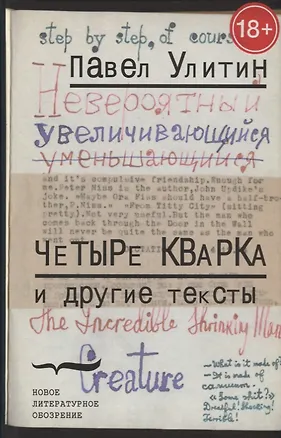 step by step, of cours
18+
Павел Улитин
Невероятный
увеличивающийся
уменьшающийся
and it's compulsive friendship. Enough for
me. Peter Minn is the author, John Updike's
joke. «Maybe Ora Finn should have a half-bro-
ther, P. Minn.» «From Titty City» (sitting
pretty). Not very useful. But the man who
comes back through the Door in the Wall
will never be quite the same as the man who
четыре кварка
и другие тексты
The Incredible Shrinking Man
Creature
— What is it made of?
— It is made of
«Some shit?»
Dreadful! Shocking!
Terrible!
НОВОЕ
ЛИТЕРАТУРНОЕ
ОБОЗРЕНИЕ